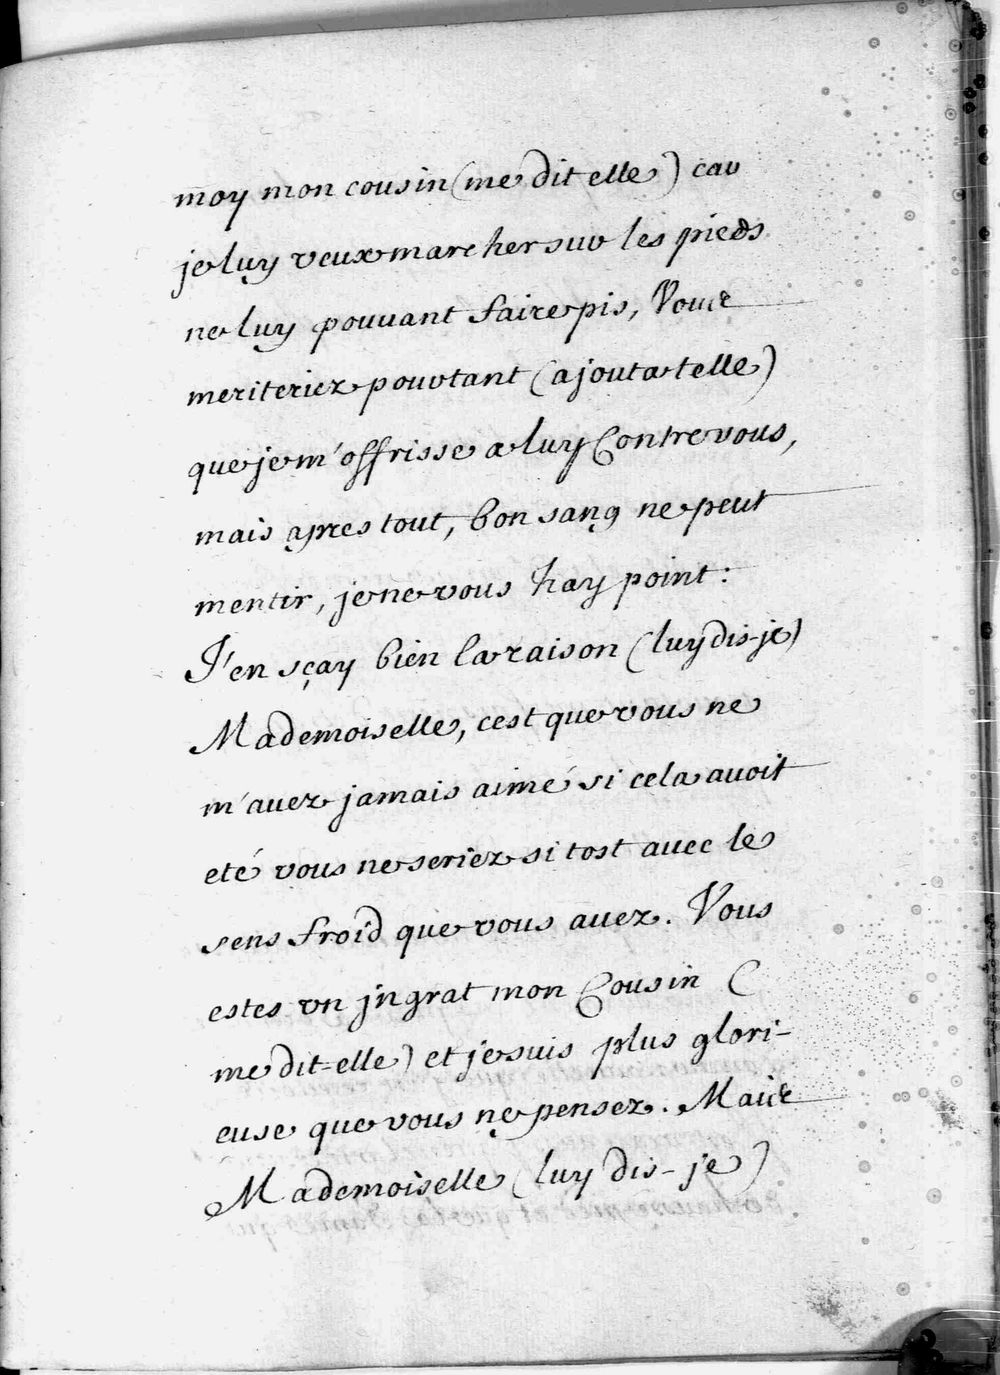 moy mon cousin (me dit elle) car
je luy veux marcher sur les pieds
ne luy pouvant faire pis, Vous
meriteriez pourtant (ajouta telle)
que je m'offrisse a luy Contre vous,
mais apres tout, bon sang ne peut
mentir, je ne vous hay point:
J'en sçay bien la raison (luy dis-je)
Mademoiselle, cest que vous ne
m'auez jamais aimé si cela auoit
eté vous ne seriez si tost auec le
sens froid que vous auez. Vous
estes vn jngrat mon Cousin (
me dit-elle) et je suis plus glori-
euse que vous ne pensez. Mais
Mademoiselle (luy dis-je)